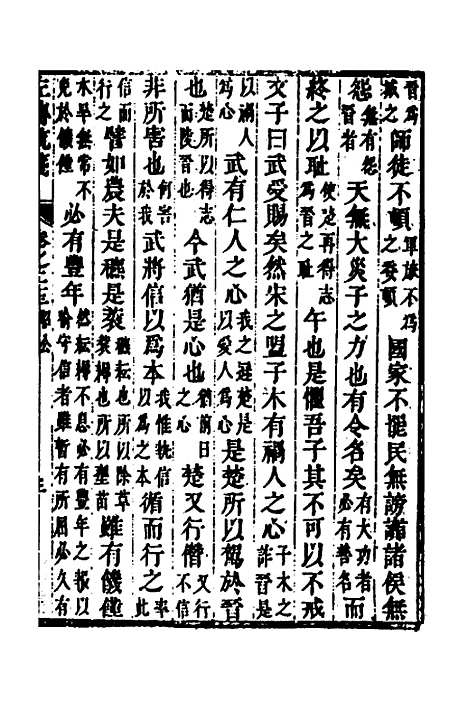 晉爲
城之師徒不頓軍旅不爲
之委頓國家不罷民無謗讟諸侯無
怨無有怨
晉者天無大災子之力也有令名矣有大功者
必有善名而
終之以恥使楚再得志
爲晉之恥午也是懼吾子其不可以不戒
文子曰武受賜矣然宋之盟子木有禍人之心子木之
詐晉是
以禍人
爲心武有仁人之心我之遜楚是
以愛人爲心是楚所以駕於晉
也楚所以得志
而陵晉也今武猶是心也猶前日
之心楚又行僭又行
不信
非所害也何害
於我武將信以爲本我惟執信
以爲之本循而行之率
此
信而
行之譬如農夫是穮是蓘穮耘也所以除草
蓘耨也所以壅苗雖有饑饉
水旱無常不
免於饑饉必有豐年然耘耨不息必有豐年之報以
喻守信者雖暫有所屈必久有